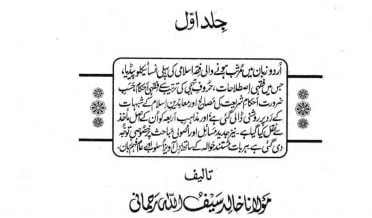 جلد اوّل
اُردو زبان میں مرتب ہونے والی فقہ اسلامی کی پہلی انسائیکلوپیڈیا،
جس میں فقہی اصطلاحات، حروف تہجی کی ترتیب سے فقہی احکام، حسب
ضرورت احکام شریعت کی مصالح اور معاندین اسلام کے شبہات
کے رد پر روشنی ڈالی گئی ہے اور مذاہب اربعہ کو ان کے اصل مآخذ
سے نقل کیا گیا ہے، نیز جدید مسائل اور اصولی مباحث پر خصوصی توجہ
دی گئی ہے، ہر بات مستند حوالہ کے ساتھ دل آویز اسلوب اور عام فہم زبان۔
تالیف
مولانا خالد سیف اللہ رحمانی